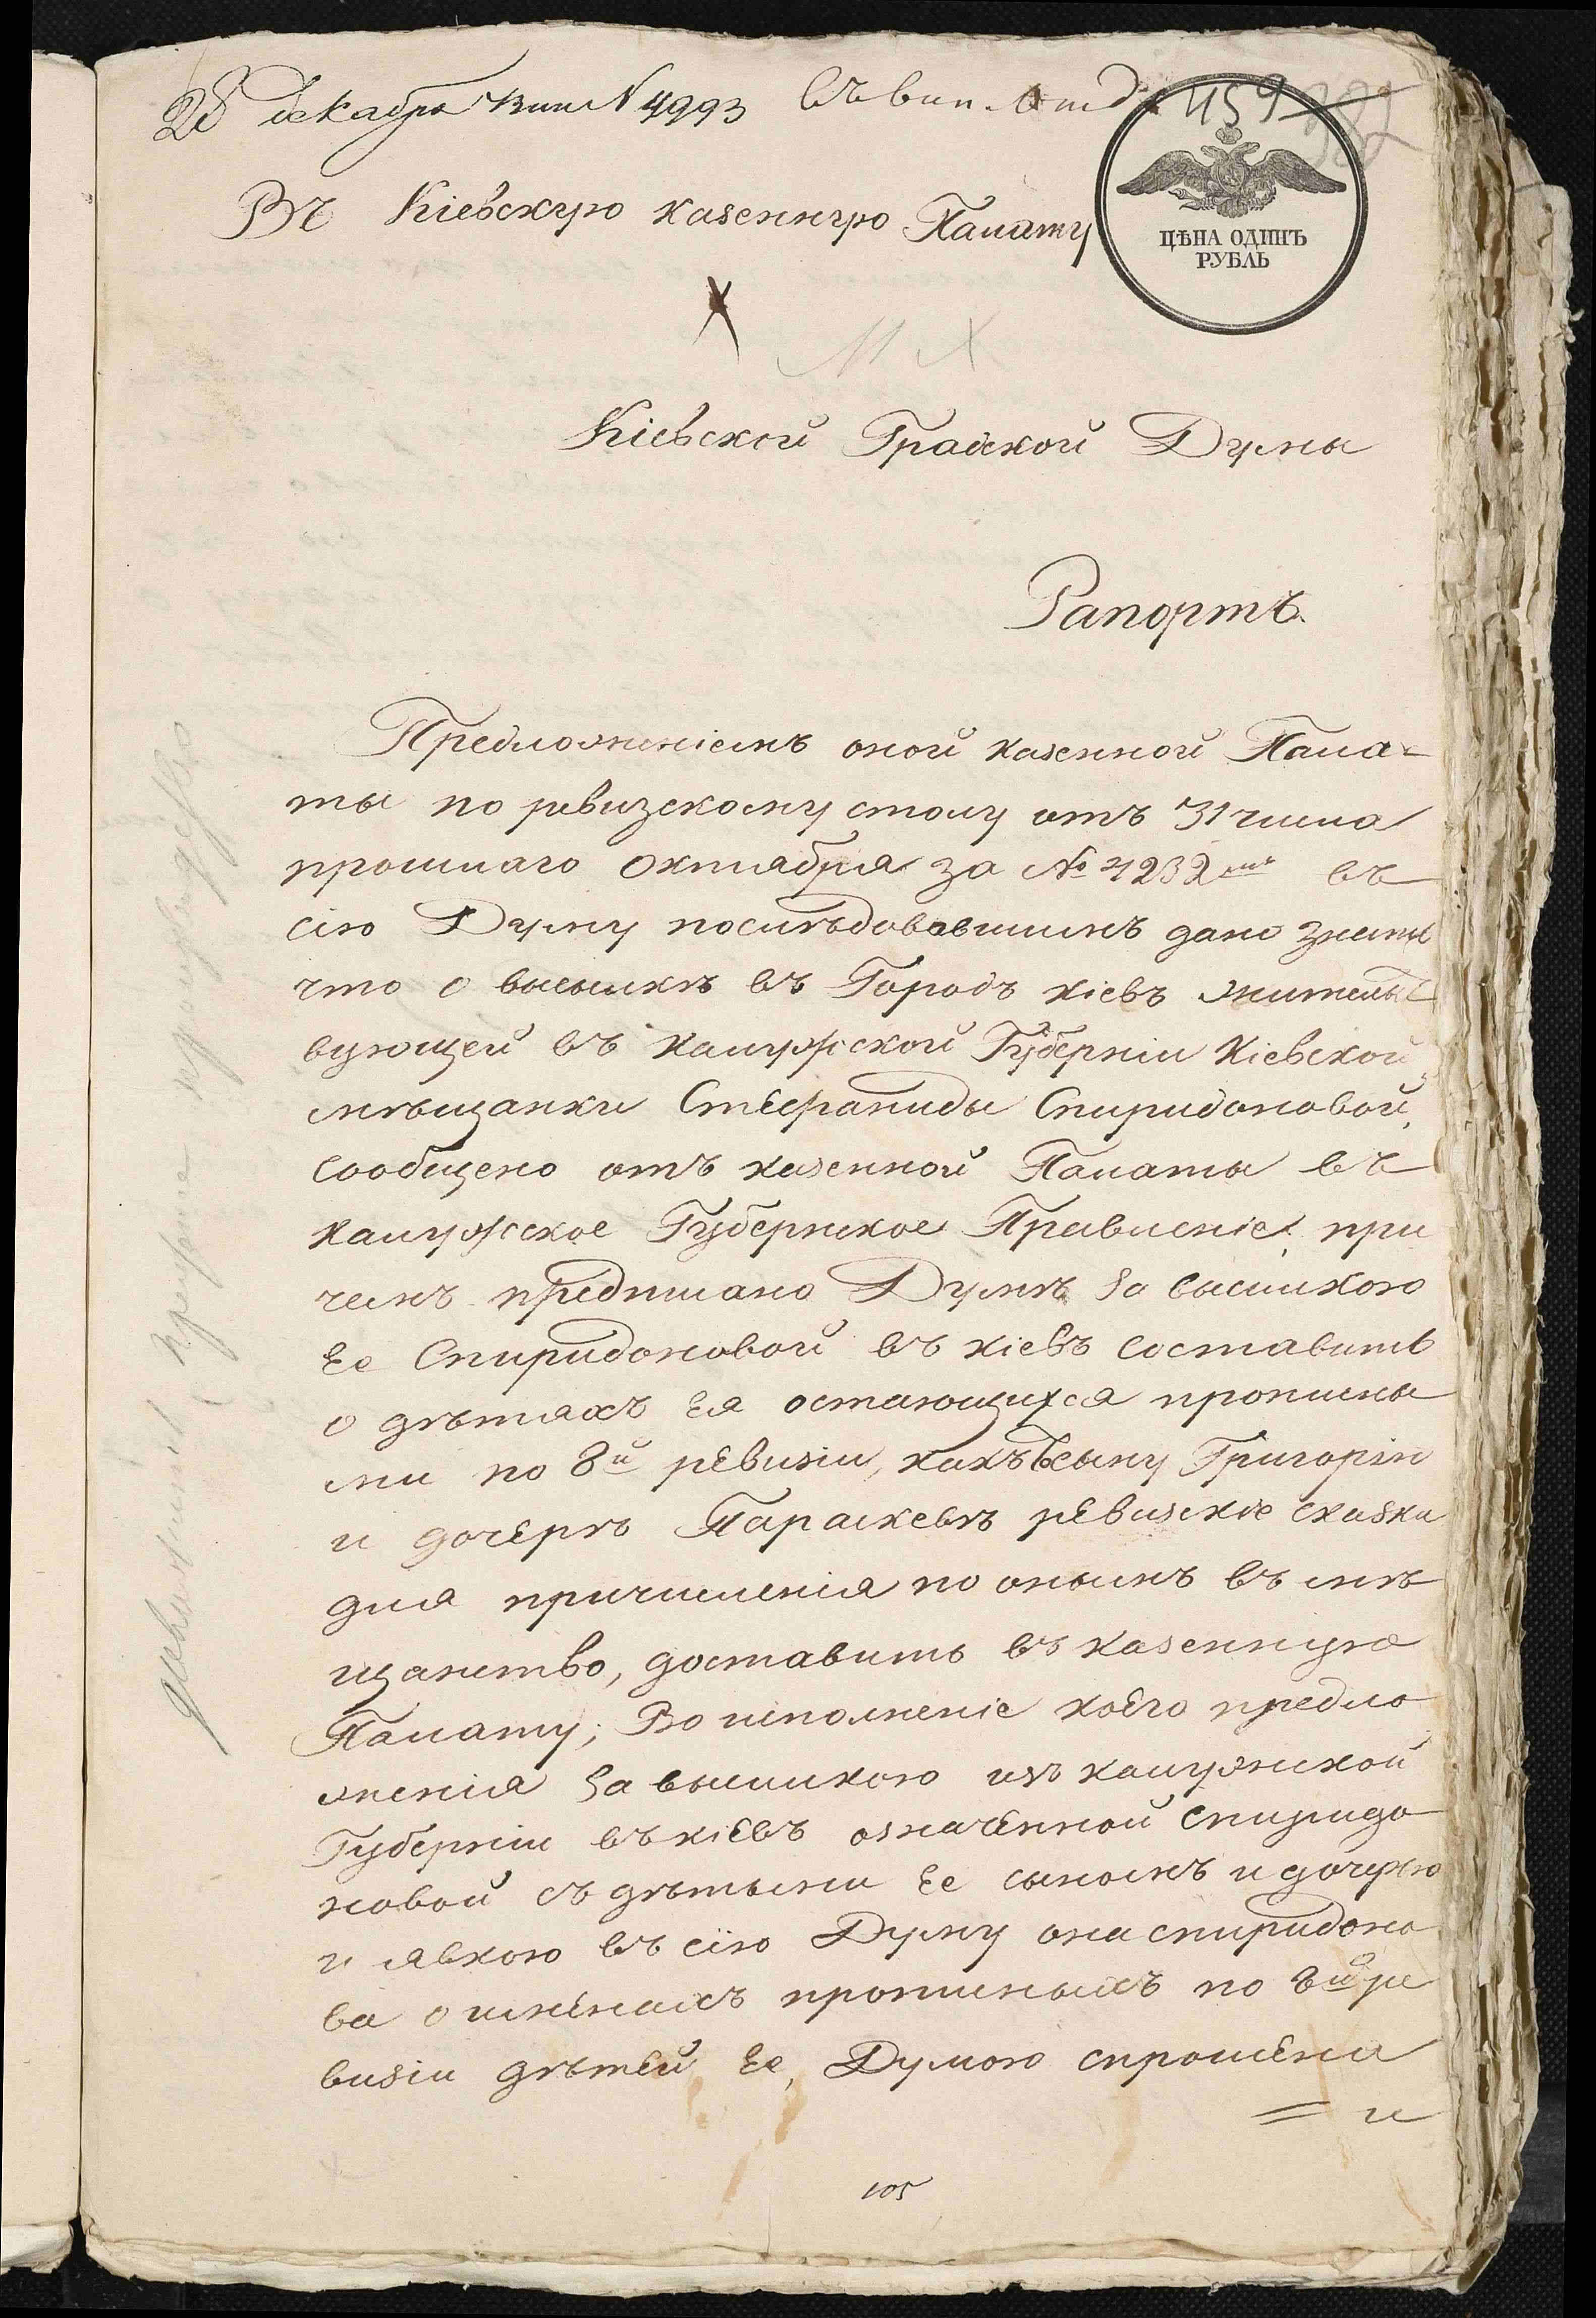 28 декабря N 4993
459
382
Въ Кіевскую казенную Палату
ЦѢНА ОДИНЪ
РУБЛЬ
Кіевской Градской Думы
Рапортъ.
Предложеніемъ оной казенной Пала-
ты по ревизскому столу отъ 31 числа
прошлаго Октября за № 4232мъ въ
сію Думу послѣдовавшимъ дано знать
что о высылкѣ въ Городъ Кіевъ жительст
вующей въ Калужской Губерніи Кіевской
мѣщанки Стефаниды Спиридоновой,
сообщено отъ казенной Палаты въ
Калужское Губернское Правленіе, при
чемъ предписано Думѣ за высылкою
Ее Спиридоновой въ Кіевъ составить
о дѣтяхъ Ея остающихся прописны
ми по 8й ревизіи, какъ сыну Григоріи
и дочерѣ Параскевѣ ревизскіе сказки
для причисленія по онымъ въ мѣ
щанство, доставить въ казенную
Палату; Во исполненіе коего предло
женія за высылкою изъ Калужской
Губерніи въ Кіевъ означенной Спиридо
новой съ дѣтьми Ее сыномъ и дочерью
и явкою въ сію Думу она Спиридоно
ва о прописныхъ по 8й ре
визіи дѣтей Ее, Думою спрошена
= и
105